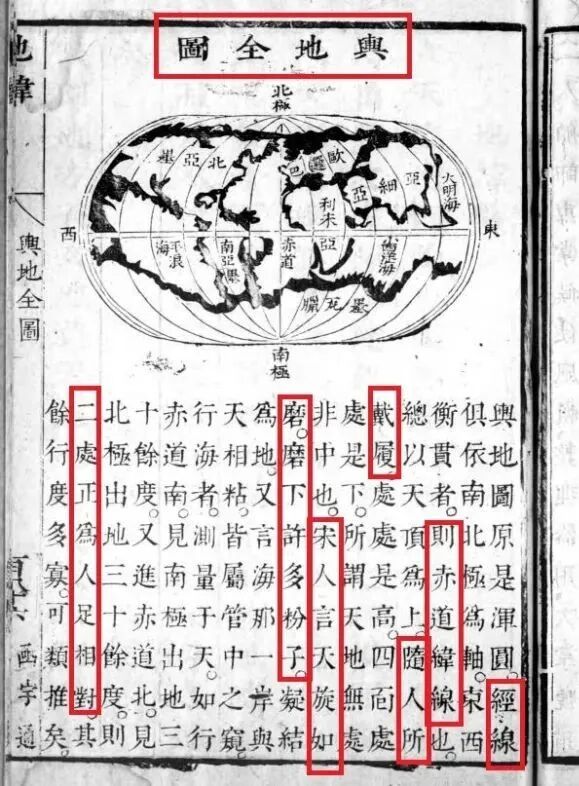 輿地全圖
北極
大明海
亞細亞
歐
巴
利未亞
北亞墨
東
西
赤道
南亞墨
海浪平
墨瓦臘
南極
輿地圖原是渾圓。經線
俱依南北極爲軸。東西
衡貫者。則赤道緯線也。
總以天頂爲上。隨人所
戴履。處處是高。四面處
處是下。所謂天地無處
非中也。宋人言天旋如
磨。磨下許多粉子。凝結
爲地。又言海那一岸與
天相粘。皆屬管中之窺。
行海者。測量于天。如行
赤道南。見南極出地三
十餘度。又進赤道北。見
北極出地三十餘度。則
二處正爲人足相對。其
餘行度多寡。可類推矣。
地緯
輿地全圖
函宇通